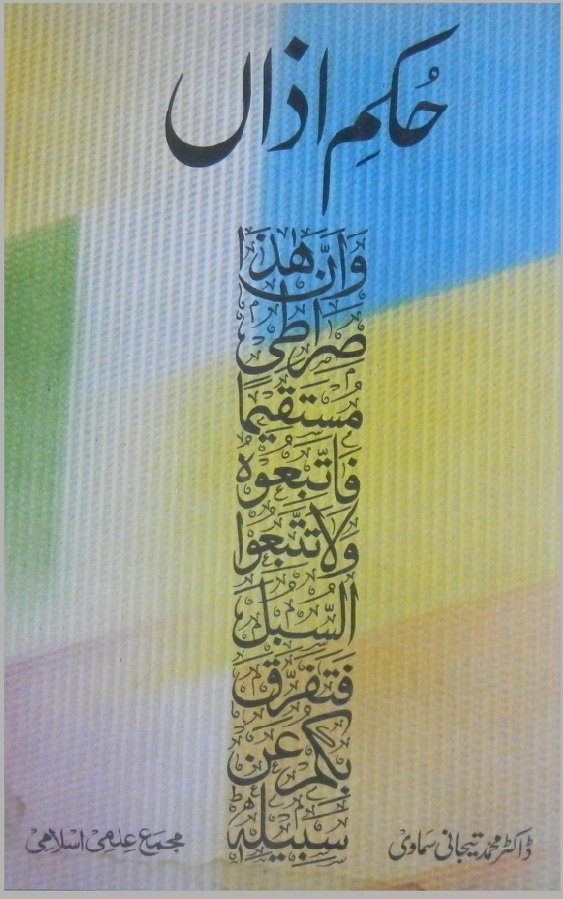 حُکمِ اذاں
وَاَنَّ هٰذَا
صِرَاطِیْ
مُسْتَقِیْمًا
فَاتَّبِعُوْهُ
وَلَا تَتَّبِعُوا
السُّبُلَ
فَتَفَرَّقَ
بِکُمْ عَنْ
سَبِیْلِهٖ
ڈاکٹر محمد تیجانی سماوی
مجمع علمی اسلامی